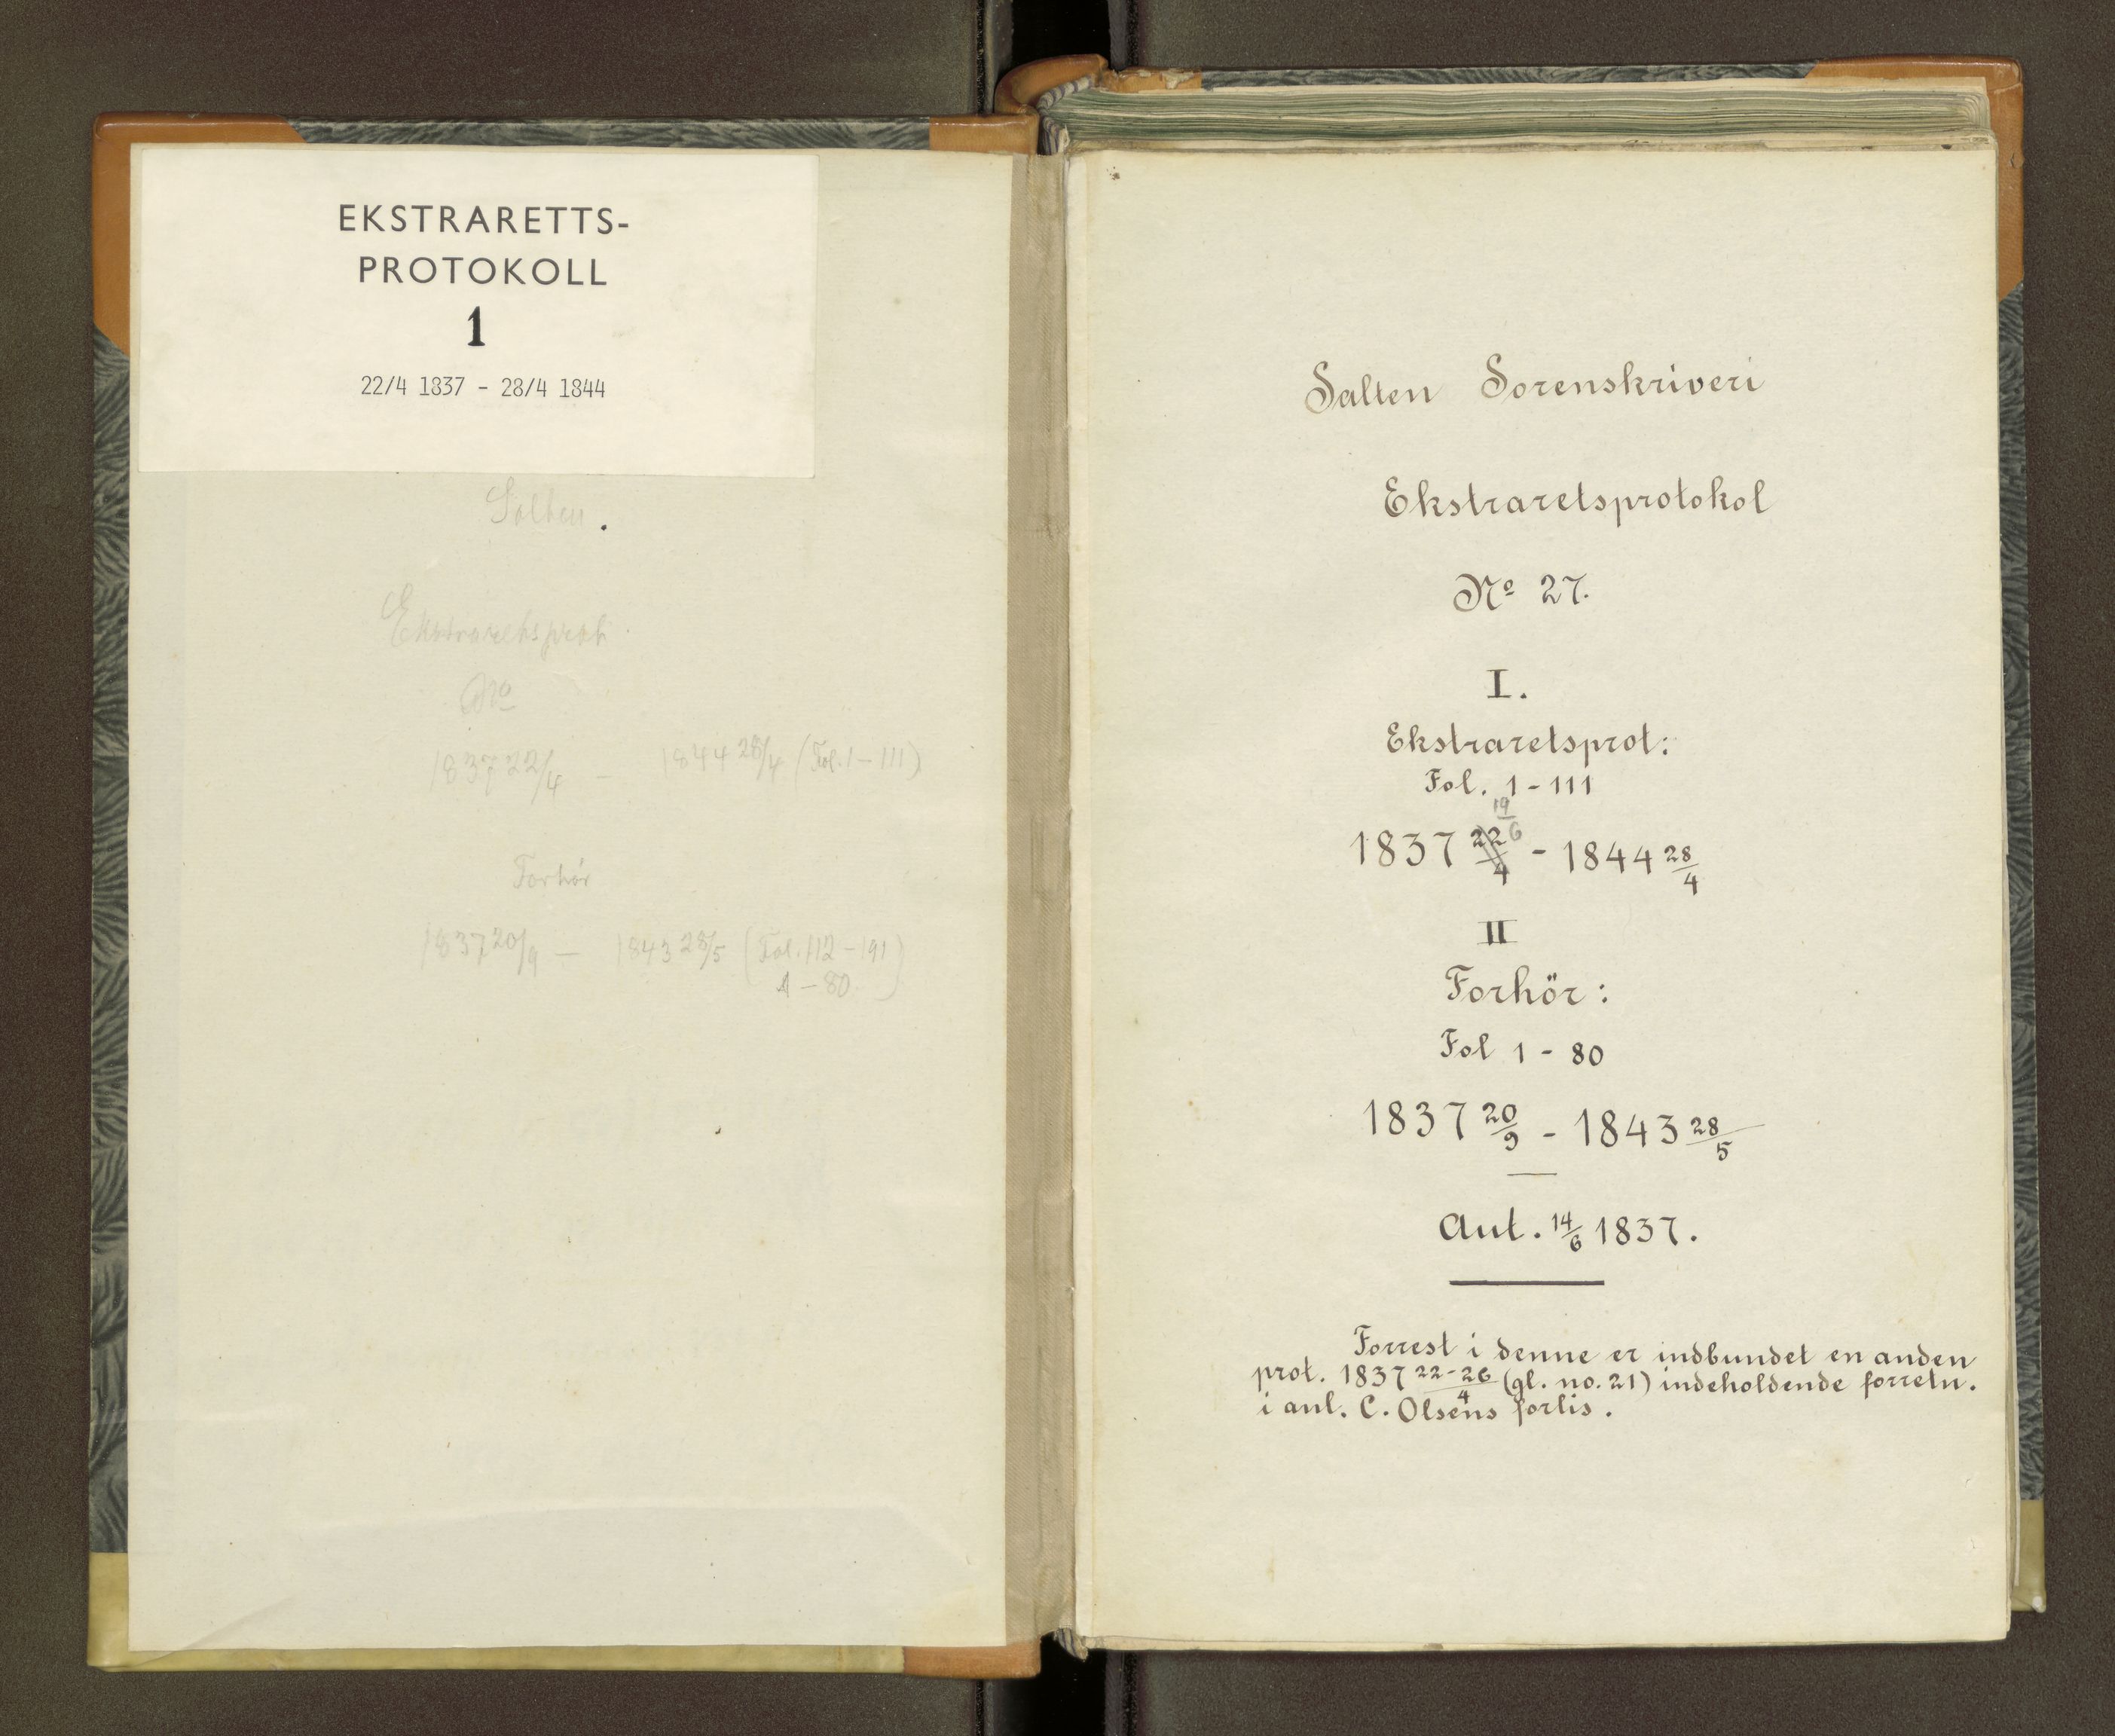 EKSTRARETTS-
PROTOKOLL
1
22/4 1837 - 28/4 1844
Salten.
Ekstraretsprot.
Nº
1837 22/4 - 1844 28/4 (Fol. 1-111)
Forhör
1837 20/9 - 1843 28/5 (Fol. 112-191)
1-80
Salten Sorenskriveri
Ekstraretsprotokol
Nº 27.
I.
Ekstraretsprot:
Fol. 1-111
19/6
1837 22/4 - 1844 28/4
II
Forhör:
Fol 1-80
1837 20/9 - 1843 28/5
Aut. 14/6 1837.
Forrest i denne er indbundet en anden
prot. 1837 22-26/4 (gl. no. 21) indeholdende forretn.
i anl. C. Olsens forlis.